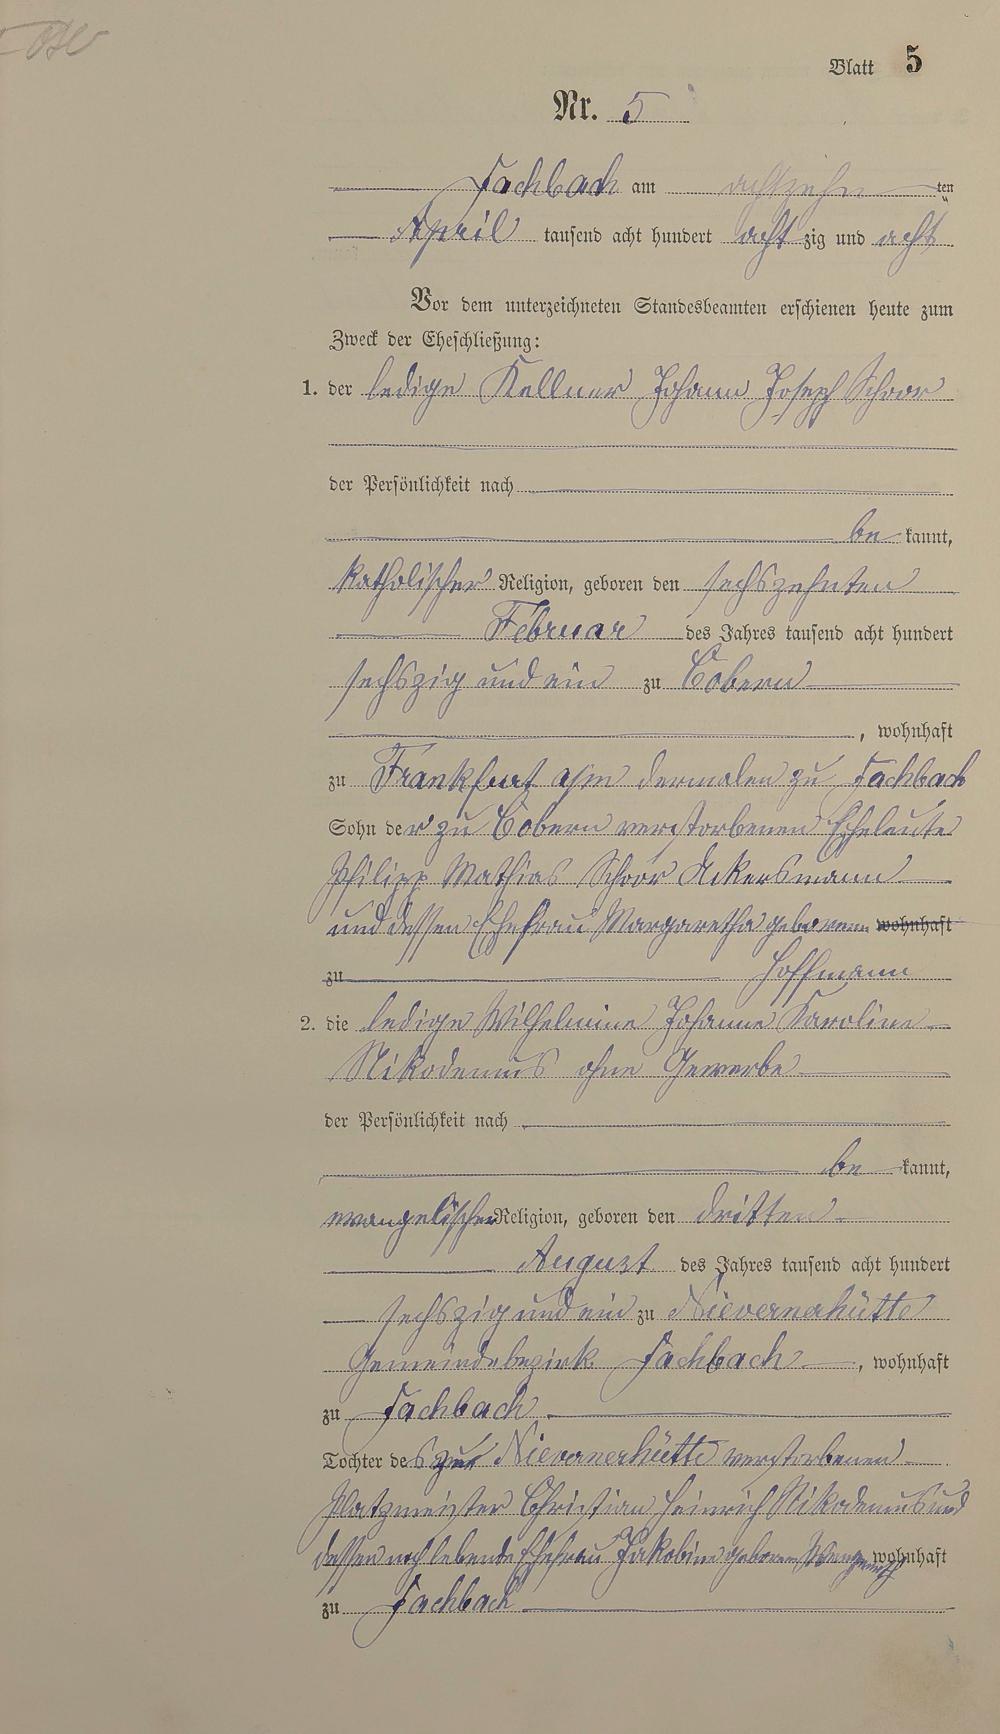 Blatt 5
Nr. 5
Fachbach am achtzehnten
April tausend acht hundert achtzig und acht
Vor dem unterzeichneten Standesbeamten erschienen heute zum
Zweck der Eheschließung:
1. der ledige Kellner Johann Joseph Schoor
der Persönlichkeit nach
bekannt,
katholischer Religion, geboren den sechszehnten
Februar des Jahres tausend acht hundert
sechszig und ein zu Cobern
, wohnhaft
zu Frankfurt a/m dermalen zu Fachbach
Sohn der zu Cobern verstorbenen Eheleute
Philipp Mathias Schoor Ackersmann
und dessen Ehefrau Margaretha geborenen wohnhaft
zu Hoffmann
2. die ledige Wilhelmine Johanne Karoline
Nikodemus ohne Gewerbe
der Persönlichkeit nach
bekannt,
evangelischer Religion, geboren den dritten
August des Jahres tausend acht hundert
sechszig und ein zu Nievernerhütte
Gemeindebezirk Fachbach, wohnhaft
zu Fachbach
Tochter des zur Nievernerhütte verstorbenen
Platzmeister Christian Heinrich Nikodemus und
dessen noch lebende Ehefrau Jakobine geborenen wohnhaft
zu Fachbach